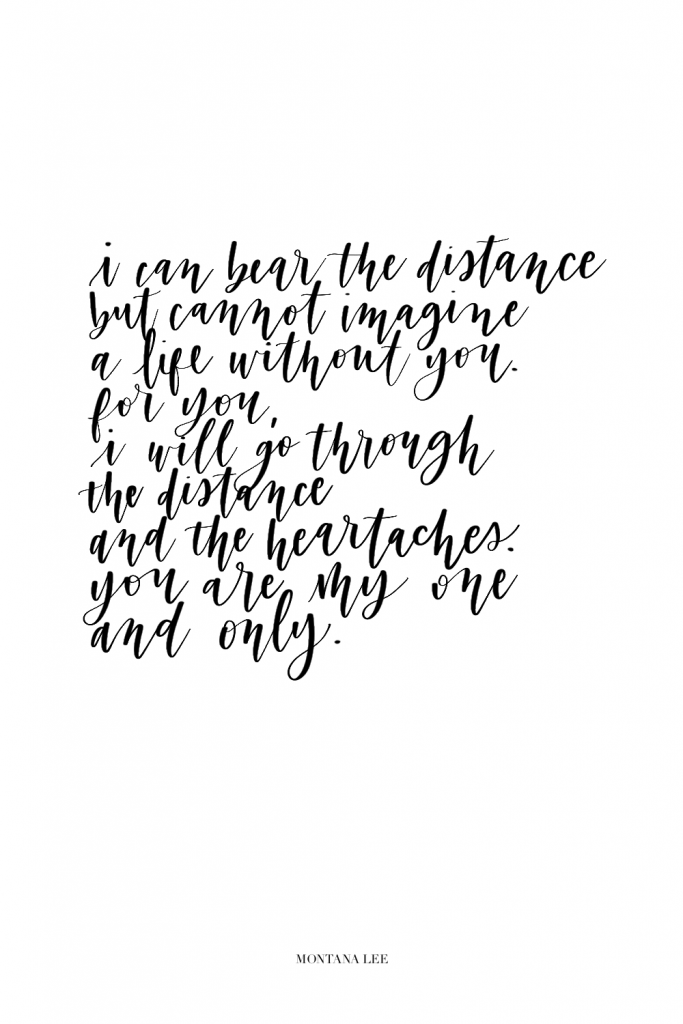 i can bear the distance
but cannot imagine
a life without you.
for you,
i will go through
the distance
and the heartaches.
you are my one
and only.
MONTANA LEE